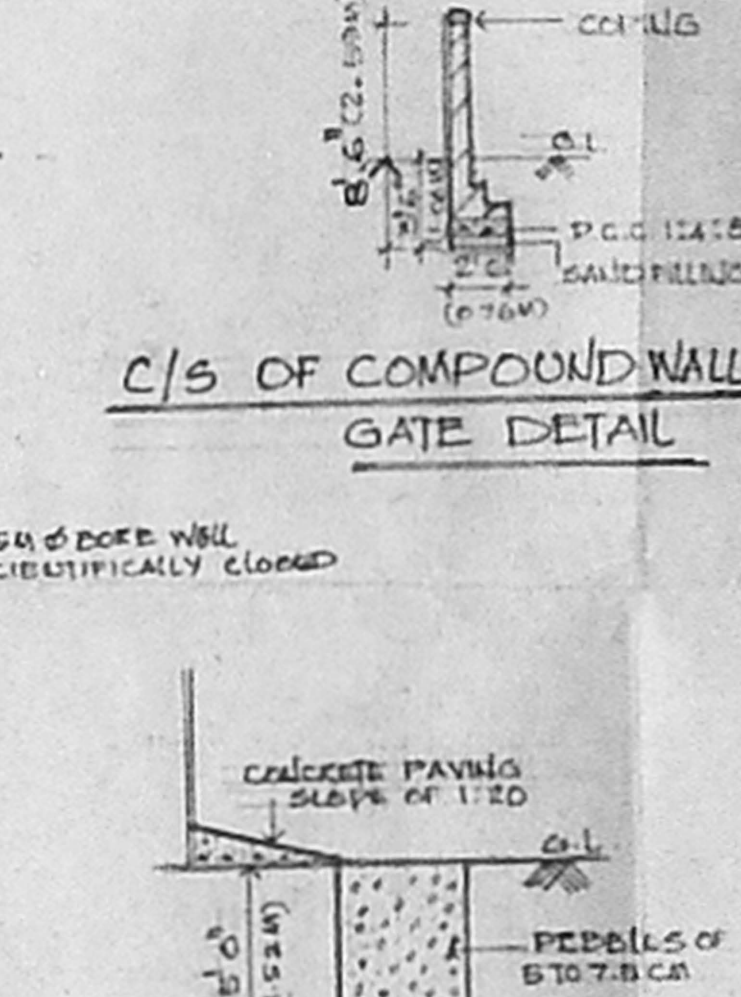 COPING
8'6" (2.59M)
G.L
P.C.C. 1:4:8
SAND FILLING
(0.76M)
C/S OF COMPOUND WALL
GATE DETAIL
Ø BORE WELL
CIENTIFICALLY CLOSED
CONCRETE PAVING
SLOPE OF 1:20
G.L
PEBBLES OF
5 TO 7.5 CM